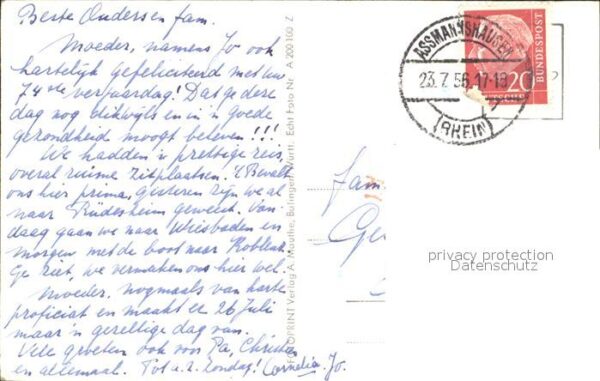 Beste Ouders en fam.
Moeder, namens Jo ook
hartelijk gefeliciteerd met uw
74ste verjaardag! Dat ge deze
dag nog dikwijls en in goede
gezondheid moogt beleven!!!
We hadden 'n prettige reis,
overal ruime zitplaatsen. 't Bevalt
ons hier prima, gisteren zijn we al
naar Rüdesheim geweest. Van-
daag gaan we naar Wiesbaden en
morgen met de boot naar Koblenz.
Ge ziet, we vermaken ons hier wel.
Moeder, nogmaals van harte
proficiat en maakt er 26 Juli
maar 'n gezellige dag van.
Vele groeten ook voor Pa, Christ
en allemaal. Tot a.s. Zondag! Cornelia, Jo.
Verlag A. Mauthe, Bulingen/Württ. Echt Foto Nr. A 200 100 Z
ASSMANNSHAUSEN
23.7.56.17-18
(RHEIN)
DEUTSCHE
BUNDESPOST
20
Fam
Ge
privacy protection
Datenschutz